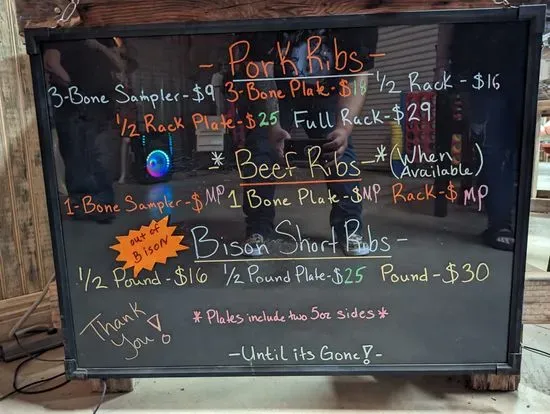 - Pork Ribs -
3-Bone Sampler - $9 3-Bone Plate - $18 1/2 Rack - $16
1/2 Rack Plate - $25 Full Rack - $29
* Beef Ribs - * (When Available)
1-Bone Sampler - $MP 1 Bone Plate - $MP Rack - $MP
out of BISON
Bison Short Ribs -
1/2 Pound - $16 1/2 Pound Plate - $25 Pound - $30
* Plates include two 5oz sides *
Thank You!
- Until its Gone! -